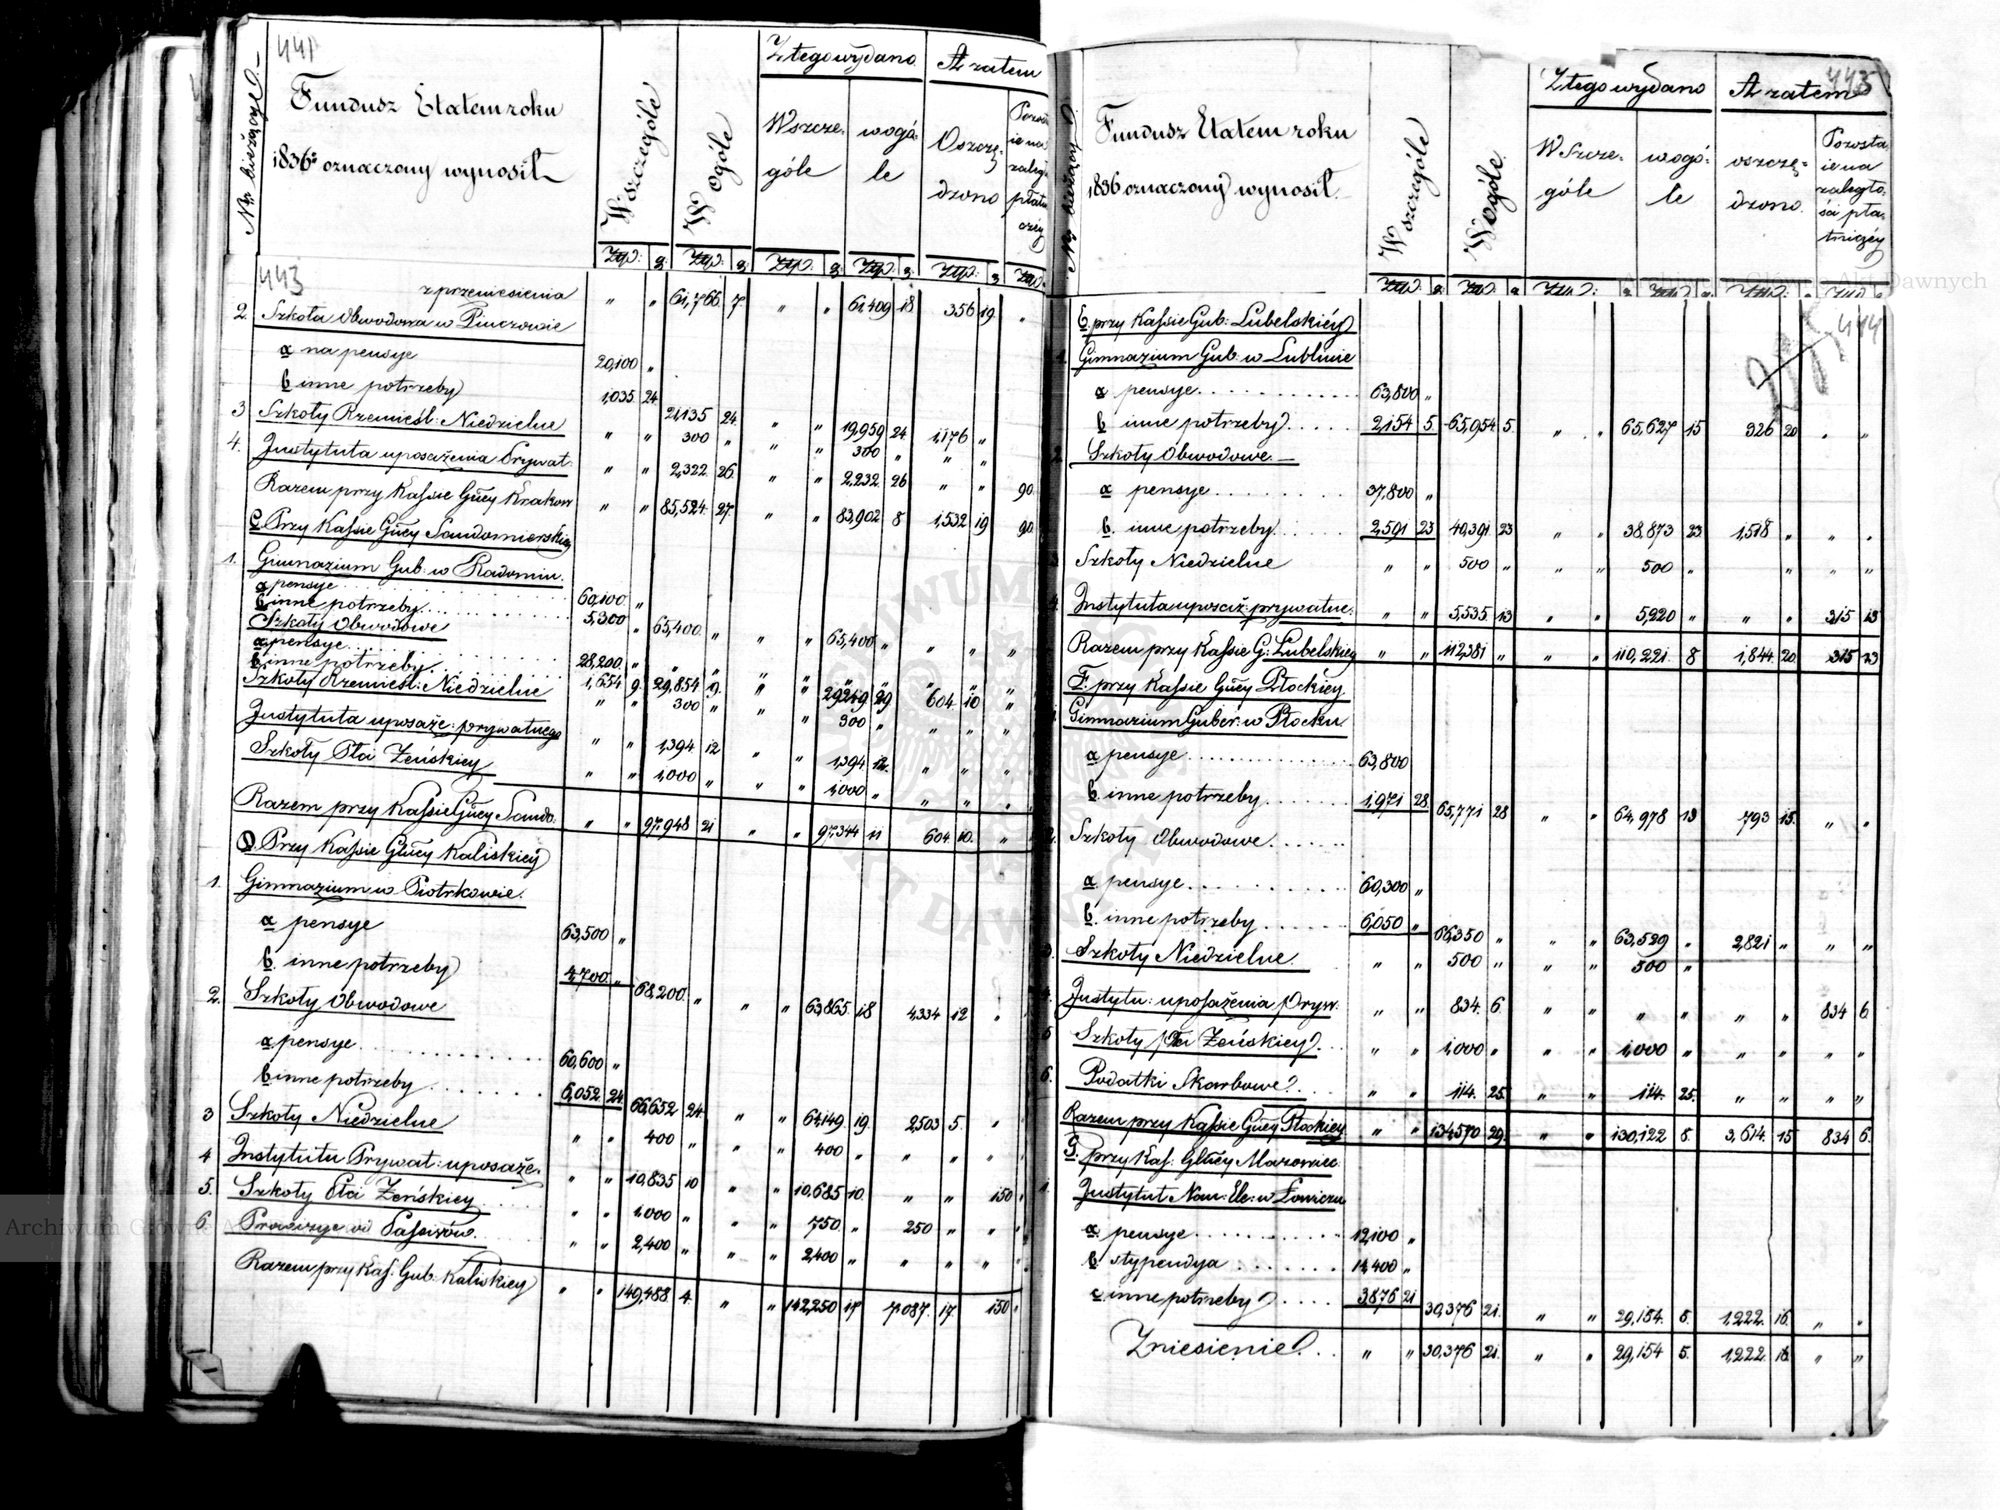 441
Nr bieżący
Fundusz Etatem roku
1836 oznaczony wynosił
Wszczególe
Wogóle
Z tego wydano
Wszcze-
góle
wogó-
le
A zatem
Oszczę-
dzono
Złp: g: Złp: g: Złp: g: Złp: g: Złp: g: Złp.
443
z przeniesienia " " 61,766 7 " " 61,409 18 356 19 "
2. Szkoła Obwodowa w Pinczowie
a na pensye 20,100 "
b inne potrzeby 1,035 24 21,135 24 " " 19,959 24 1,176 "
3 Szkoły Rzemieśl: Niedzielne " " 300 " " " 300 " " "
4. Instytuta uposażenia Prywat: " " 2,322 26 " " 2,232 26 " " 90
Razem przy Kassie Głney Krakow " " 85,524 27 " " 83,902 8 1,532 19 90
C. Przy Kassie Głney Sandomierskiey
1. Gimnazium Gub: w Radomiu.
a pensye 60,100 "
b inne potrzeby 5,300 " 65,400 " " " 65,400 " " " "
Szkoły Obwodowe
a pensye 28,200 "
b inne potrzeby 1,654 9 29,854 9 " " 29,249 29 604 10 "
Szkoły Rzemieśl: Niedzielne " " 300 " " " 300 " " " "
Instytuta uposaże: prywatnego " " 1,394 12 " " 1,394 12 " " "
Szkoły Płci Żeńskiey " " 1,000 " " " 1,000 " " " "
Razem przy Kassie Głney Sando. " " 97,948 21 " " 97,344 11 604 10 "
D. Przy Kassie Głney Kaliskiey
1. Gimnazium w Piotrkowie.
a pensye 63,500 "
b. inne potrzeby 4,700 " 68,200 " " " 63,865 18 4,334 12 "
2. Szkoły Obwodowe
a. pensye 60,600 "
b inne potrzeby 6,052 24 66,652 24 " " 64,149 19 2,503 5 "
3 Szkoły Niedzielne " " 400 " " " 400 " " " "
4 Instytutu Prywat: uposaże. " " 10,835 10 " " 10,685 10 " " 150 "
5. Szkoły Płci Żeńskiey " " 1,000 " " " 750 " 250 " " "
6. Prowizye od Passivów " " 2,400 " " " 2,400 " " " "
Razem przy Kas: Gub: Kaliskiey " " 149,488 4 " " 142,250 17 7,087 17 150 "
443
Fundusz Etatem roku
1836 oznaczony wynosił
Wszczególe
Wogóle
Z tego wydano
Wszcze-
góle
wogó-
le
A zatem
oszczę-
dzono
Pozosta-
ie na
zaległo-
ści pła-
tniczéy
Złp: g: Złp. g Złp: g Złp: g Złp: g Złp g
444
E. przy Kassie Gub: Lubelskiéy
1. Gimnazium Gub: w Lublinie
a pensye 63,800 "
b inne potrzeby 2,154 5 65,954 5 " " 65,627 15 326 20 " "
2 Szkoły Obwodowe
a pensye 37,800 "
b. inne potrzeby 2,591 23 40,391 23 " " 38,873 23 1,518 " " "
3 Szkoły Niedzielne " " 500 " " " 500 " " " " "
4. Instytuta uposaż: prywatne. " " 5,535 13 " " 5,220 " " " 315 13
Razem przy Kassie G: Lubelskiey " " 112,381 " " " 110,221 8 1,844 20 315 13
F. przy Kassie Głney Płockiey
1. Gimnazium Guber: w Płocku
a pensye 63,800
b. inne potrzeby 1,971 28 65,771 28 " " 64,978 13 793 15 " "
2. Szkoły Obwodowe
a. pensye 60,300 "
b. inne potrzeby 6,050 " 66,350 " " " 63,529 " 2,821 " " "
3. Szkoły Niedzielne " " 500 " " " 500 "
4. Instytu: uposażenia Pryw. " " 834 6 " " " " " " 834 6
5 Szkoły płci Żeńskiey " " 1,000 " " " 1,000 " " " " "
6. Podatki Skarbowe " " 114 25 " " 114 25 " " " "
Razem przy Kassie Głney Płockiey " " 134,570 29 " " 130,122 8 3,614 15 834 6
G. przy Kas: Głney Mazowiec
1. Instytut Nau: Ele: w Łowiczu
a. pensye 12,100 "
b stypendya 14,400 "
c inne potrzeby 3,876 21 30,376 21 " " 29,154 5 1,222 16 " "
Zniesienie " " 30,376 21 " " 29,154 5 1,222 16 " "
Archiwum Główne Akt Dawnych